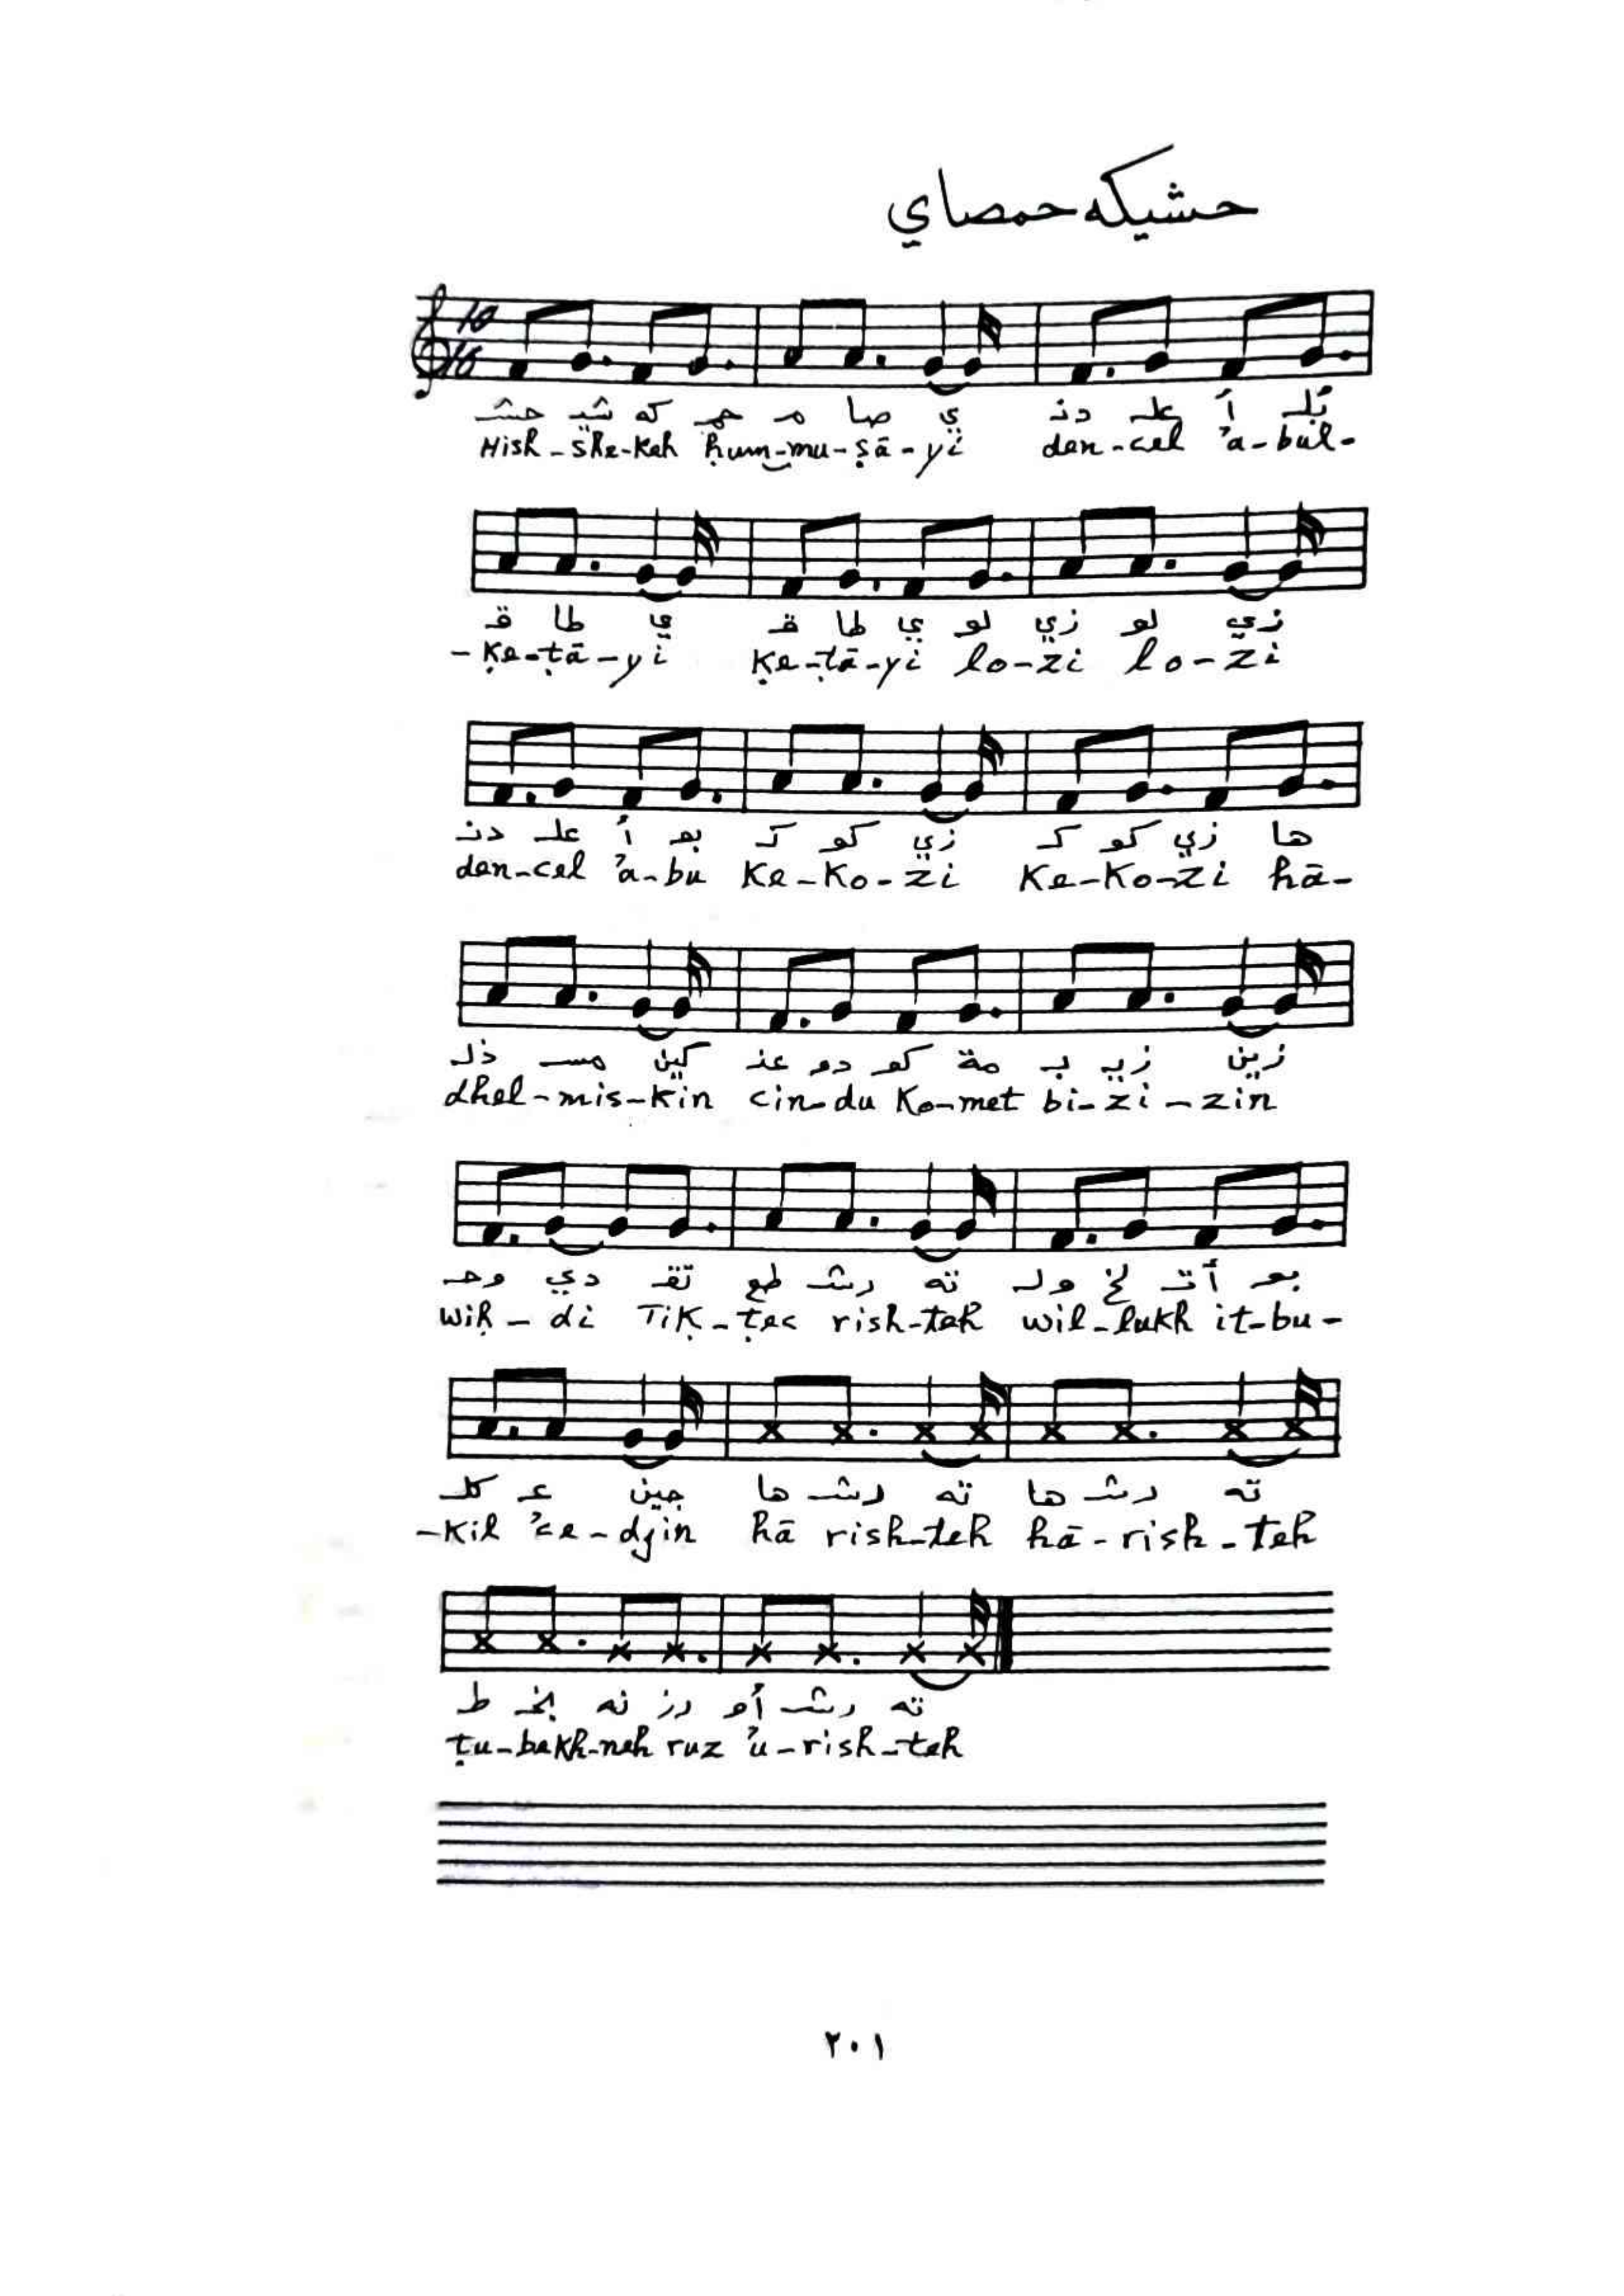 حشيكه حمصاي
10
16
حشـ شيـ كه حمـ مـ صا ي دنـ علـ أ بُلـ
Hish-she-keh ḥum-mu-ṣā-yi den-cel 'a-bul-
قـ طا ي قـ طا ي لو زي لو زي
-ḳe-ṭā-yi ḳe-ṭā-yi lo-zi lo-zi
دنـ علـ أ بو كـ كو زي كـ كو زي ها
den-cel 'a-bu ke-ko-zi ke-ko-zi hā-
ذلـ مسـ كين عنـ دو كو مة بـ زيـ زين
dhel-mis-kin cin-du ko-met bi-zi-zin
وحـ دي تقـ طع رشـ ته ولـ لخ أتـ بو
wiḥ-di Tiḳ-ṭec rish-teh wil-lukh it-bu-
كلـ عـ جين ها رشـ ته ها رشـ ته
-kil 'ce-djin hā rish-teh hā-rish-teh
طـ بخـ نه رز أو رشـ ته
ṭu-bakh-neh ruz 'u-rish-teh
٢٠١